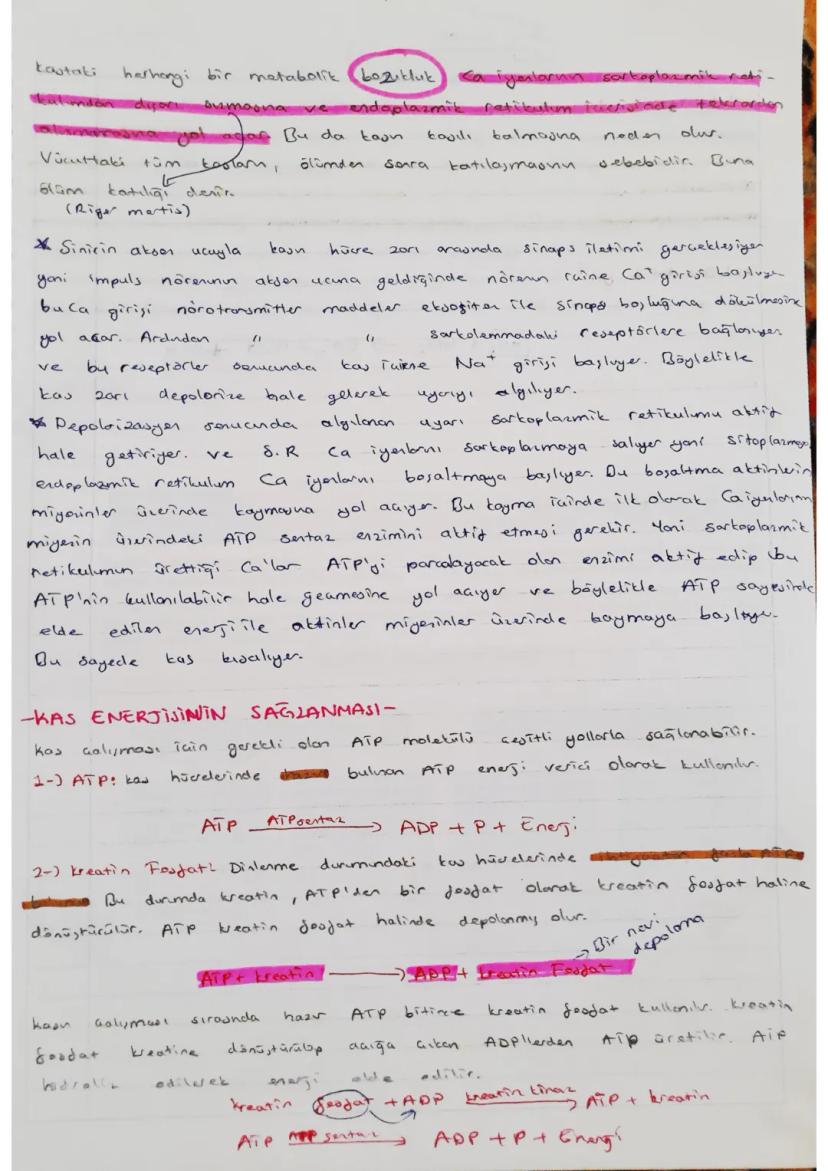 Kastaki herhangi bir metabolik bozukluk Ca iyonlarının sarkoplazmik reti-
kulumdan dışarı sızmasına ve endoplazmik retikulum içerisinde tekrardan
alınmasına yol açar. Bu da kasın kasılı kalmasına neden olur.
Vücuttaki tüm kasların, ölümden sonra katılaşmasının sebebidir. Buna
ölüm katılığı denir.
(Riger mortis)
* Sinirin akson ucuyla kasın hücre zarı arasında sinaps iletimi gerçekleşiyor
yani impuls nöronunun akson ucuna geldiğinde nöronun içine Ca+ girişi başlıyor
bu Ca girişi nörotransmitter maddeler ekzositoz ile sinaps boşluğuna dökülmesine
yol açar. Ardından " " sarkolemmadaki reseptörlere bağlanıyor.
ve bu reseptörler sonucunda kas içine Na+ girişi başlıyor. Böylelikle
kas zarı depolarize hale gelerek uyarıyı algılıyor.
* Depolarizasyon sonucunda algılanan uyarı sarkoplazmik retikulumu aktif
hale getiriyor. ve S.R Ca iyonlarını sarkoplazmaya salıyor yani sitoplazmaya
endoplazmik retikulum Ca iyonlarını boşaltmaya başlıyor. Bu boşaltma aktinlerin
miyozinler üzerinde kaymasına yol açıyor. Bu kayma içinde ilk olarak Ca iyonlarının
miyozin üzerindeki ATP sentaz enzimini aktif etmesi gerekir. Yani sarkoplazmik
retikulumun ürettiği Ca'lar ATP'yi parçalayacak olan enzimi aktif edip bu
ATP'nin kullanılabilir hale geçmesine yol açıyor ve böylelikle ATP sayesinde
elde edilen enerji ile aktinler miyozinler üzerinde kaymaya başlıyor.
Bu sayede kas kısalıyor.
-KAS ENERJİSİNİN SAĞLANMASI-
Kas çalışması için gerekli olan ATP molekülü çeşitli yollarla sağlanabilir.
1-) ATP: Kas hücrelerinde hazır bulunan ATP enerji verici olarak kullanılır.
ATP ATPsentaz → ADP + P + Enerji
2-) Kreatin Fosfat: Dinlenme durumundaki kas hücrelerinde ihtiyaçtan fazla ATP
Bu durumda kreatin, ATP'den bir fosfat olarak kreatin fosfat haline
dönüştürülür. ATP kreatin fosfat halinde depolanmış olur.
→ Bir nevi
depolama
ATP + kreatin → ADP + kreatin Fosfat
Kasın çalışması sırasında hazır ATP bitince kreatin fosfat kullanılır. Kreatin
fosfat kreatine dönüştürülüp açığa çıkan ADP'lerden ATP üretilir. ATP
hidroliz edilerek enerji elde edilir.
Kreatin fosfat + ADP kreatin kinaz → ATP + kreatin
ATP ATP sentaz → ADP + P + Enerji